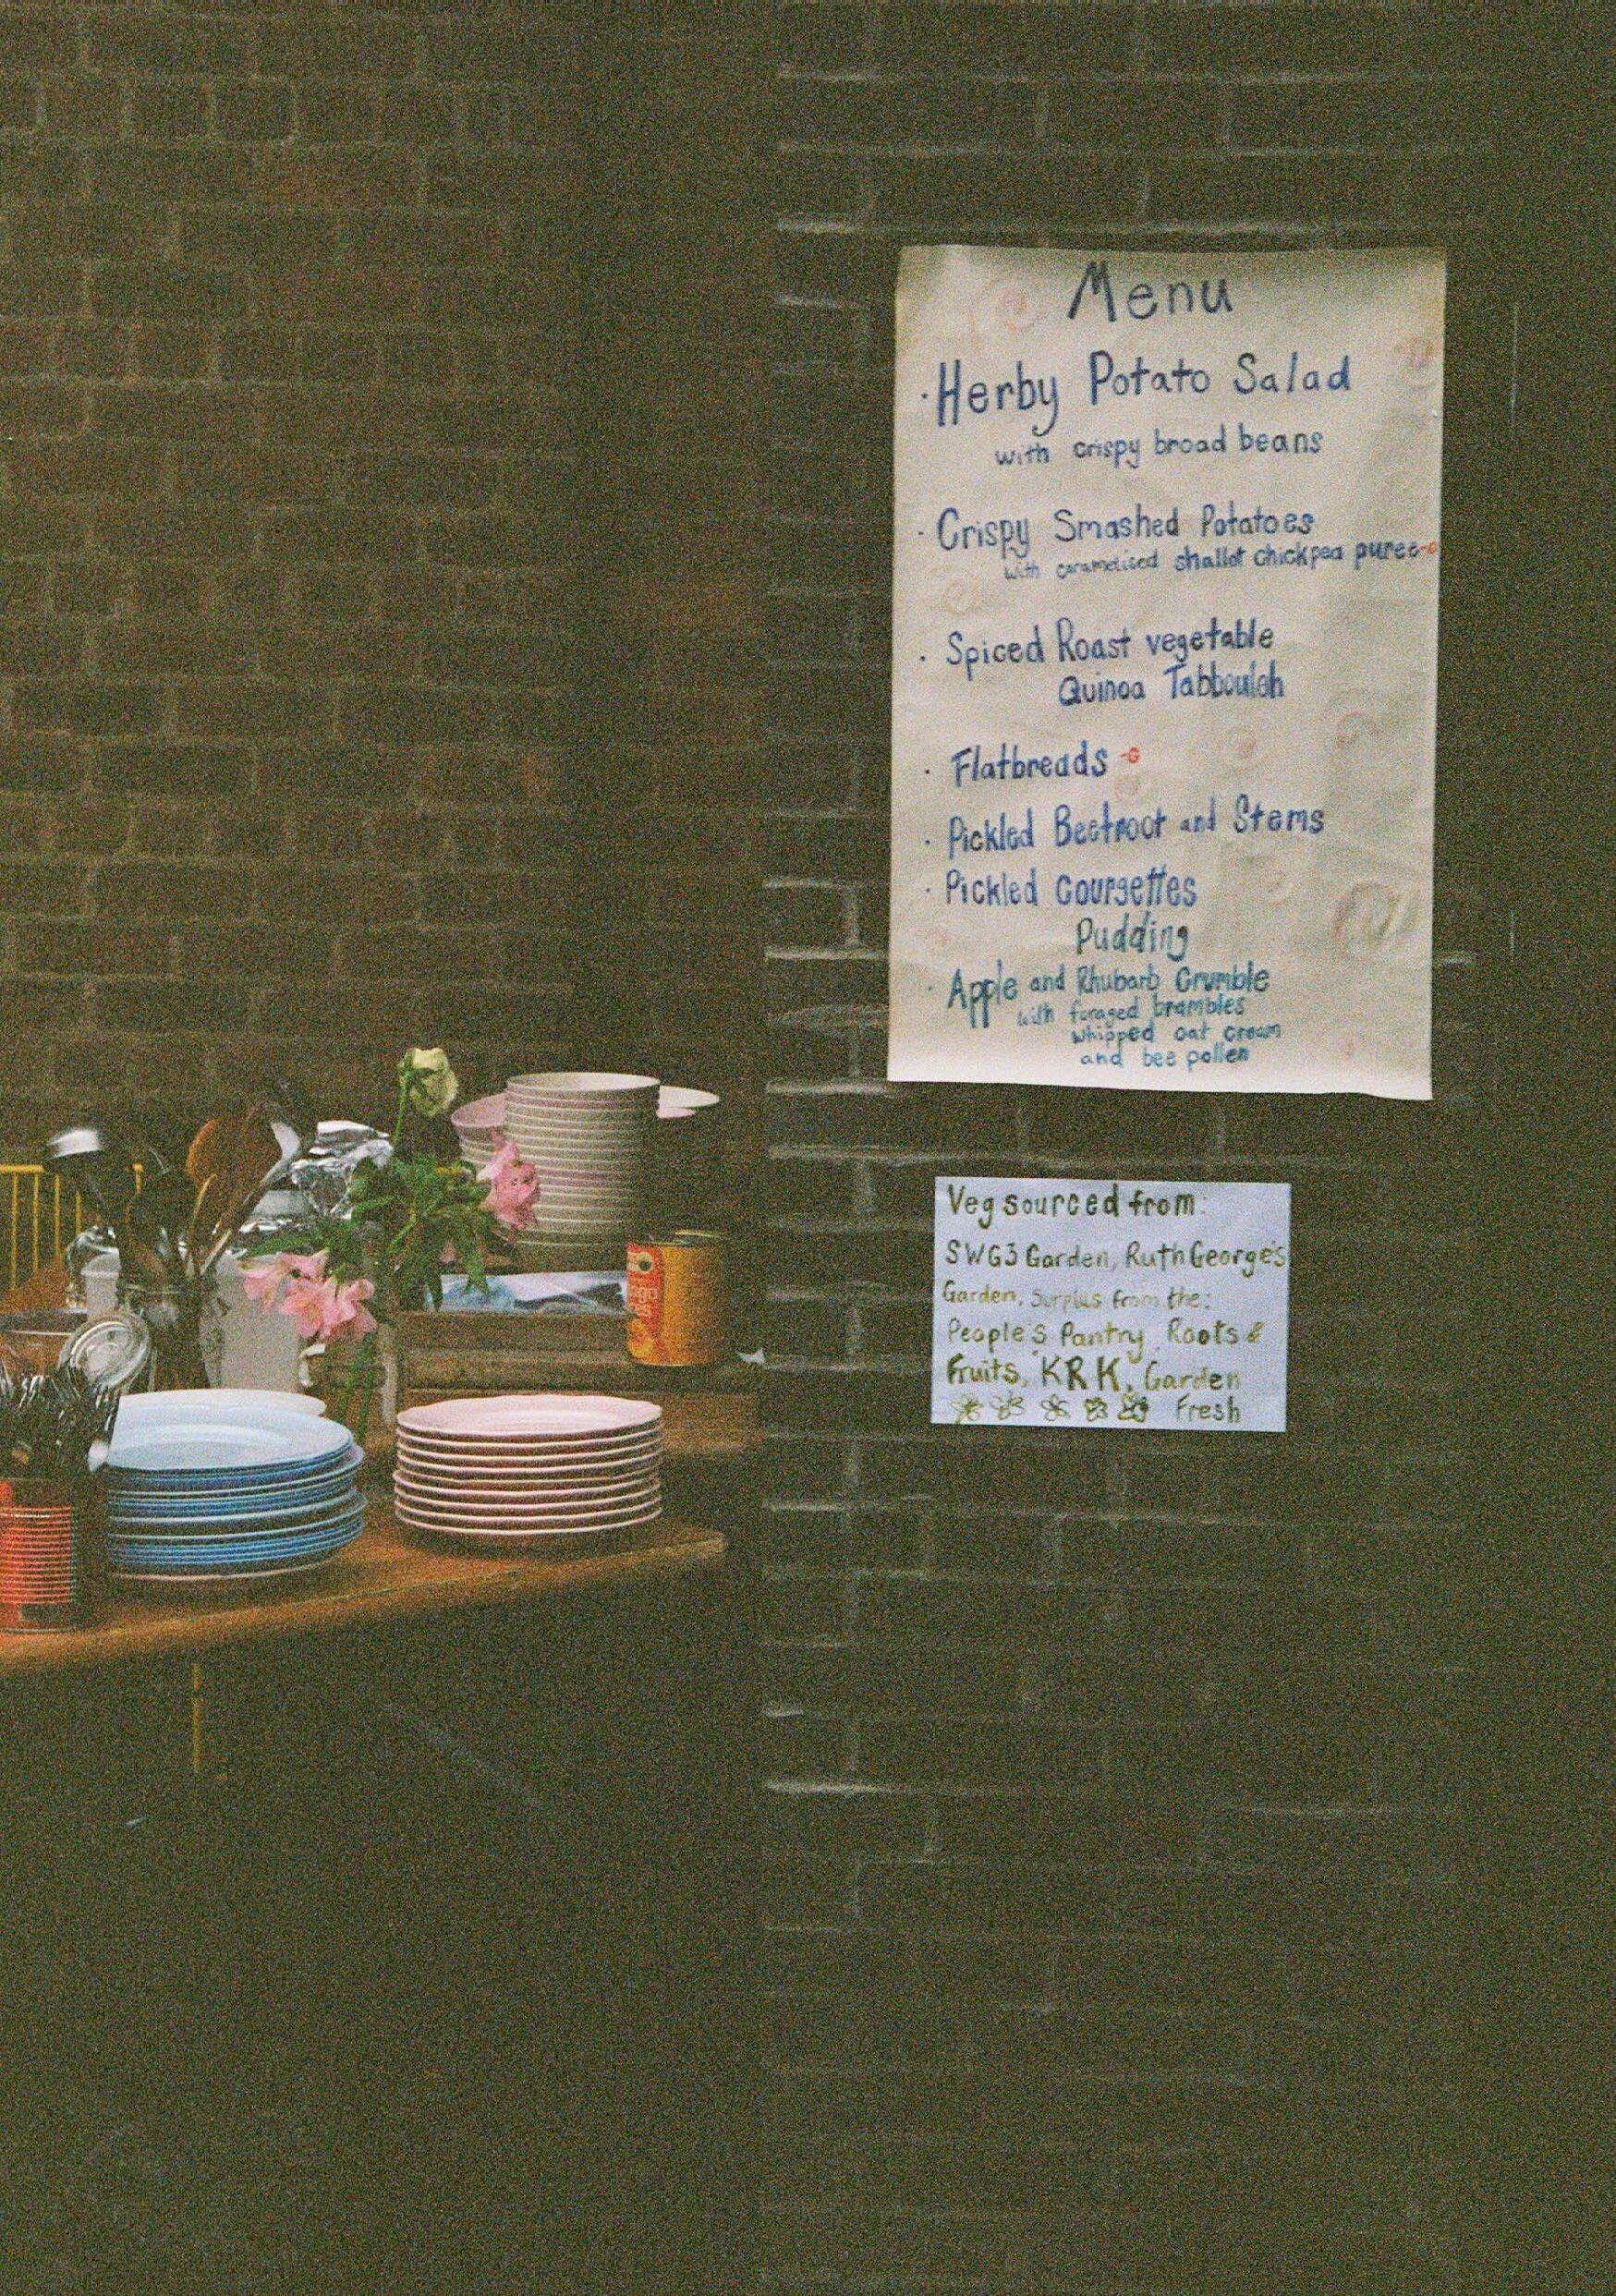 Menu
· Herby Potato Salad
with crispy broad beans
· Crispy Smashed Potatoes
with caramelised shallot chickpea puree -G
· Spiced Roast vegetable
Quinoa Tabbouleh
· Flatbreads -G
· Pickled Beetroot and Stems
· Pickled Courgettes
Pudding
· Apple and Rhubarb Crumble
with foraged brambles
whipped oat cream
and bee pollen
Veg sourced from:
SWG3 Garden, Ruth George's
Garden, Surplus from the:
People's Pantry, Roots &
Fruits, KRK, Garden
Fresh